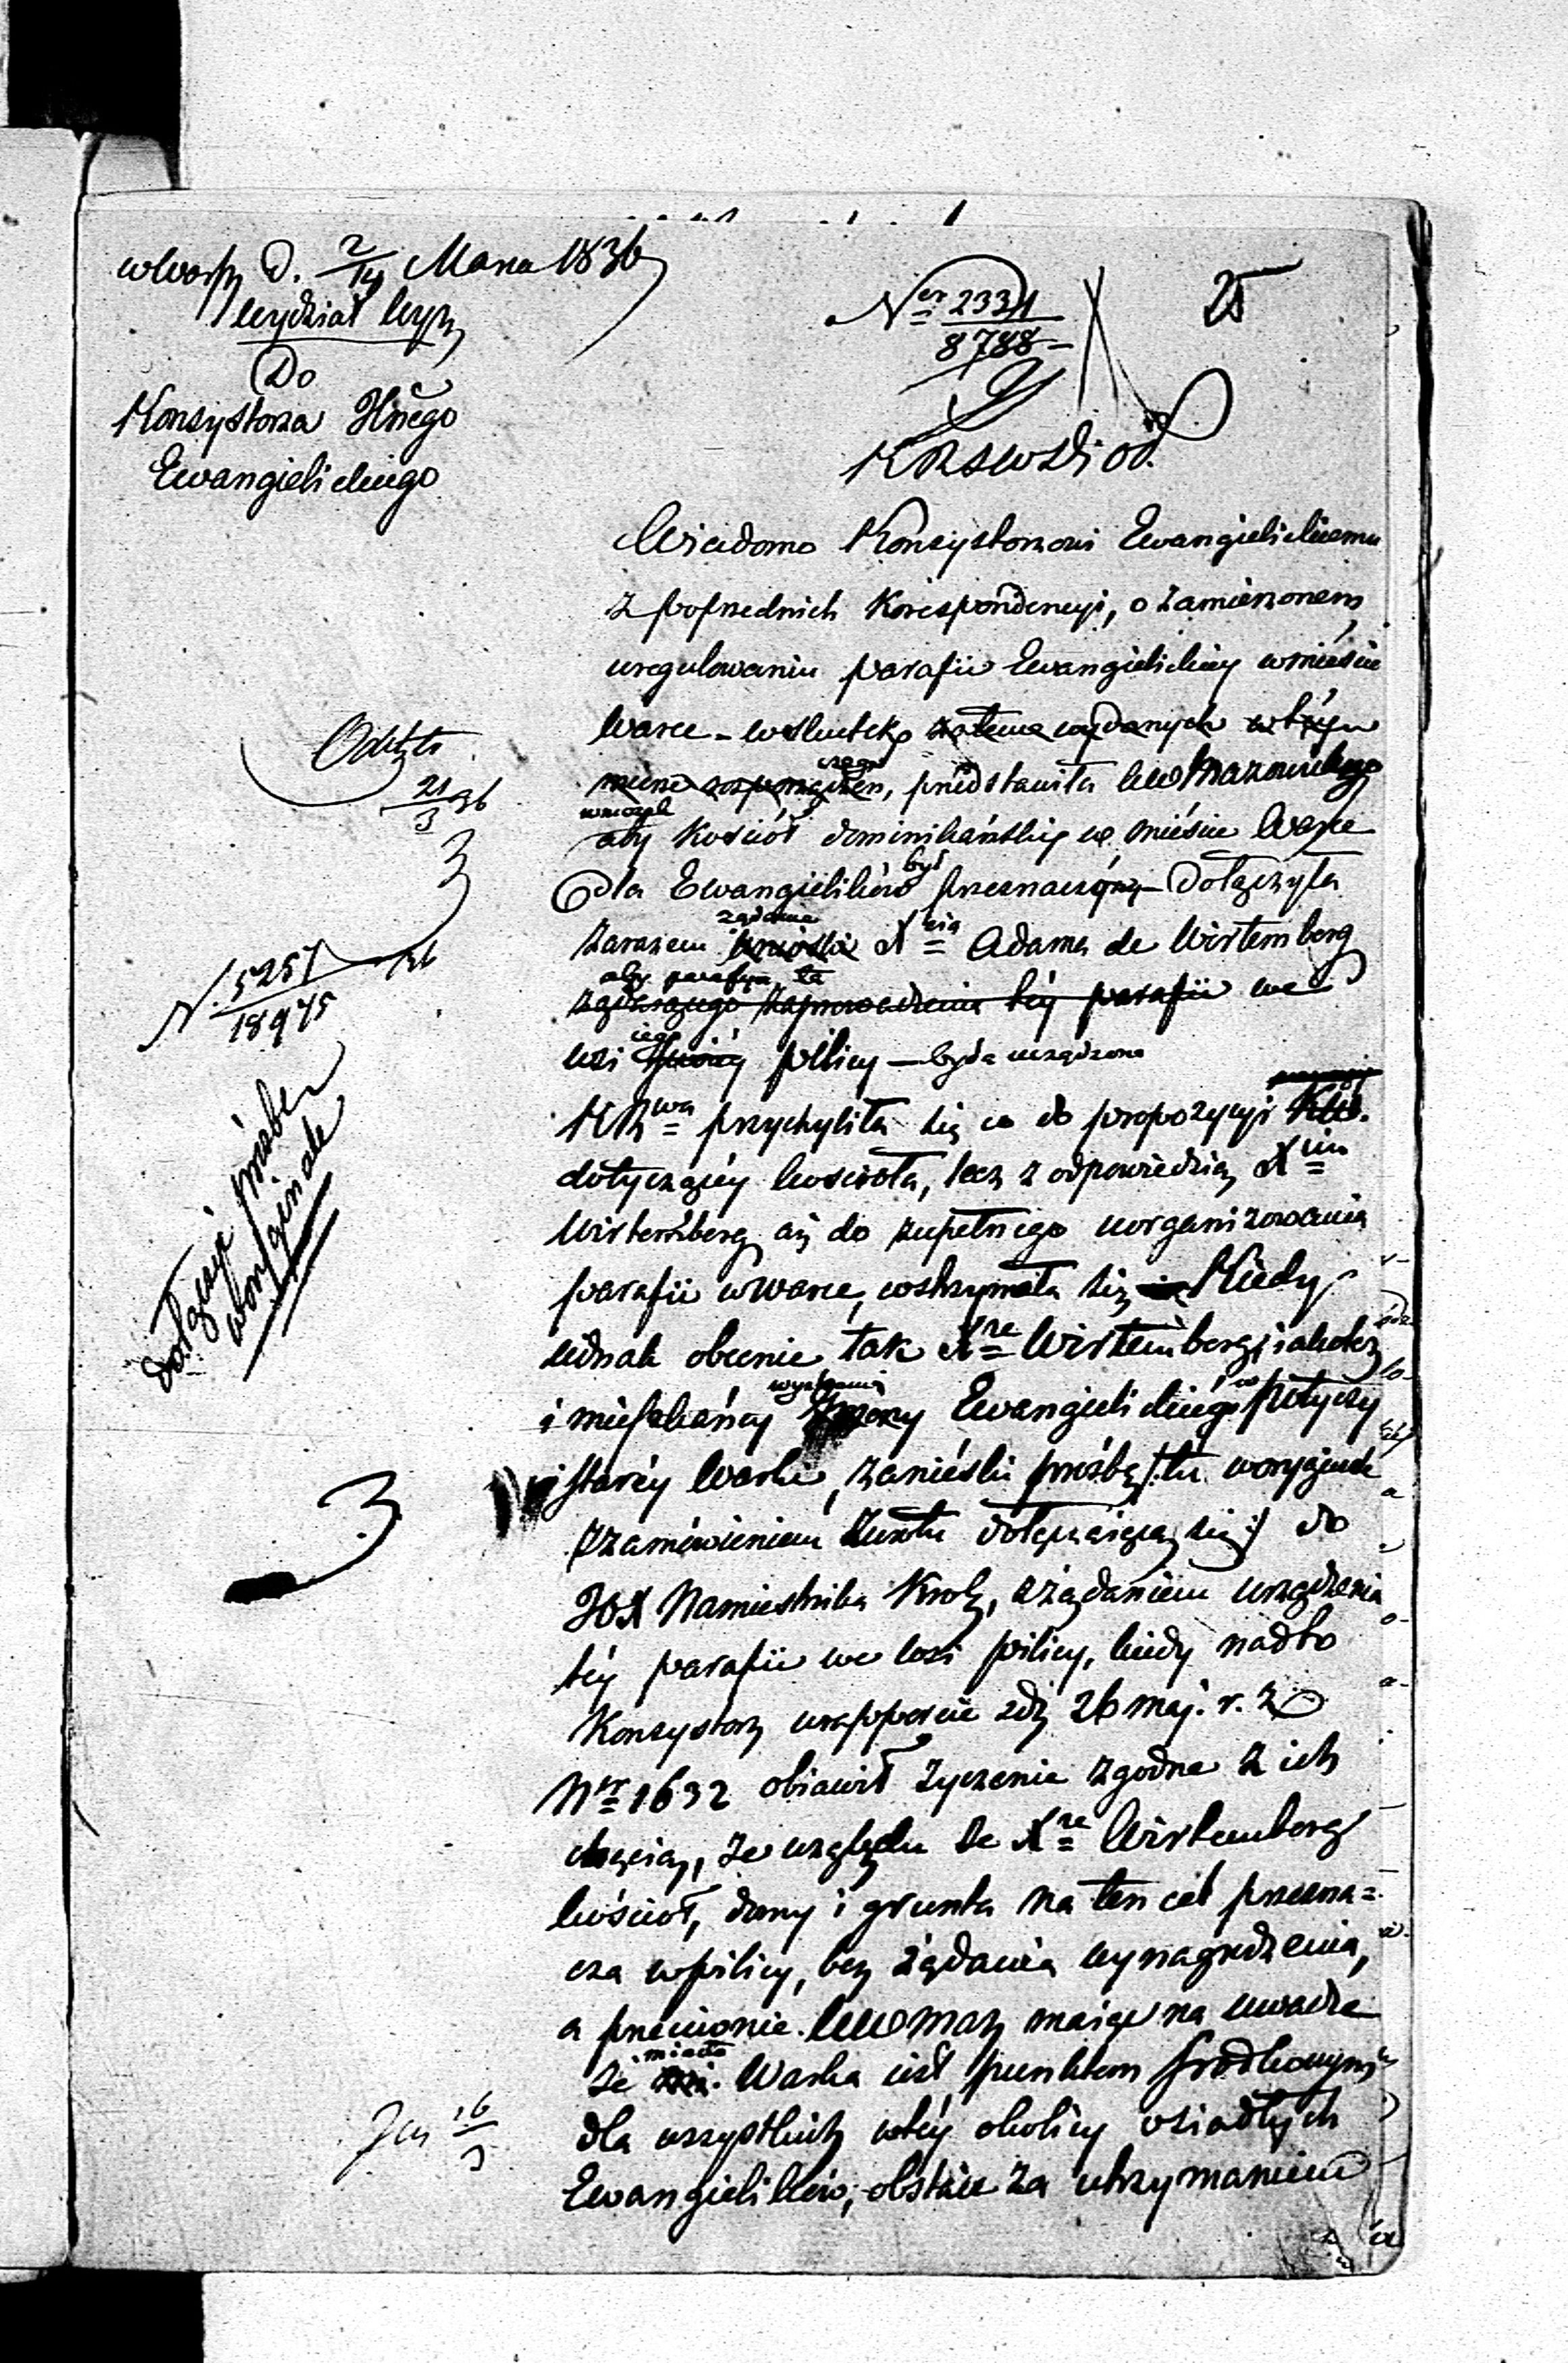 w Warsz. D. 2/14 Marca 1836
Wydział Wyzn
Do
Konsystorza Jlnego
Ewangielickiego
Nr 2331/8788
25
Wiadomo Konsystorzowi Ewangielickiemu
z poprzednich Korespondencyi, o zamierzonem
uregulowaniu parafii Ewangielickiey w mieście
Warce – w skutek zatem wydanych w tym
mierze rozporządzeń, przedstawiła KWMazowieckiego
wniosek
aby Kościoł dominikański w mieście Warce
dla Ewangielików był przeznaczony – Dołączyła
zarazem żądanie wnioski Xcia Adama de Wirtemberg
aby parafya ta
żądaiącego zaprowadzenia tey parafii we
wsi iego swoiey pilicy – była urządzona
KRwa przychyliła się co do propozycyi
dotyczącey kościoła, lecz z odpowiedzią Xciu
Wirtemberg aż do zupełnego uorganizowania
parafii w Warce, wstrzymała się Kiedy
iednak obecnie tak Xże Wirtemberg, iakoteż
i mieszkańcy wyznania Ewangielickiego w Potyczy
i starey Warki, zanieśli prośbę /: tu w oryginale
z zamówieniem zwrotu dołączaiącą się :/ do
JOX Namiestnika Król, z żądaniem urządzenia
tey parafii we wsi pilicy, kiedy nadto
Konsystorz w rapporcie z d. 26 maj. r. z
Nr 1632 obiawił życzenie zgodne z ich
chęcią, ze względu że Xże Wirtemberg
kościoł, domy i grunta na ten cel przezna=
cza w pilicy, bez żądania wynagrodzenia,
a przeciwnie KWMaz maiąc na uwadze
że miasto Warka iest punktem środkowym
dla wszystkich w tey okolicy osiadłych
Ewangielików, obstaie za utrzymaniem
21/3 36
N. 5251/18945 36
Dołączyć prośbę
w oryginale
16/3